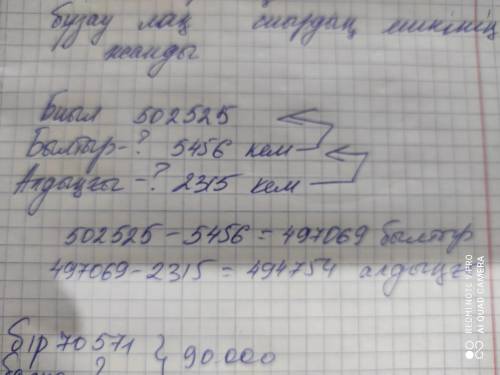 бұзау лақ сиырдың
жанды
Биыл 502525
Былтыр-? 5456 кем
Алдыңғы -? 2315 кем
502525 - 5456 = 497069 былтыр
497069 - 2315 = 494754 алдыңғ
бір 70571 } 90.000
?
REDMI NOTE 9 PRO
AI QUAD CAMERA